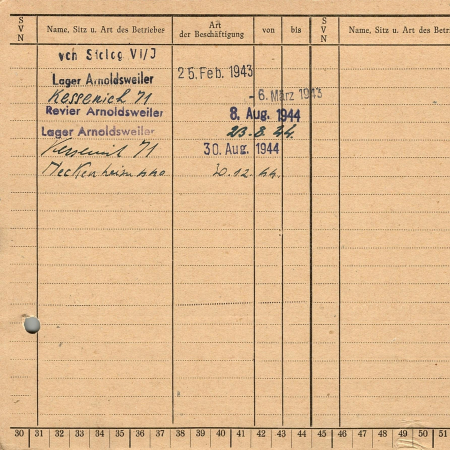 SVN Name, Sitz u. Art des Betriebes Art der Beschäftigung von bis SVN Name, Sitz u. Art des Betri
von Stalag VI/J
Lager Arnoldsweiler 25. Feb. 1943
Kessenich 71 - 6. März 1943
Revier Arnoldsweiler 8. Aug. 1944
Lager Arnoldsweiler 23.8.44.
Kessenich 71 30. Aug. 1944
Meckenheim 20.12.44.
30 31 32 33 34 35 36 37 38 39 40 41 42 43 44 45 46 47 48 49 50 51